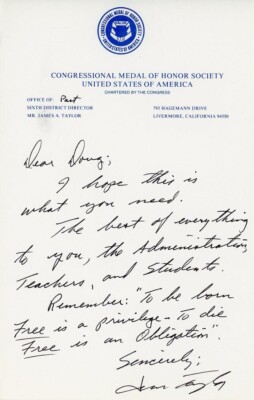 CONGRESSIONAL MEDAL OF HONOR SOCIETY
UNITED STATES OF AMERICA
CONGRESSIONAL MEDAL OF HONOR SOCIETY
UNITED STATES OF AMERICA
CHARTERED BY THE CONGRESS
OFFICE OF: Past
SIXTH DISTRICT DIRECTOR
MR. JAMES A. TAYLOR
793 HAGEMANN DRIVE
LIVERMORE, CALIFORNIA 94550
Dear Doug;
I hope this is
what you need.
The best of everything
to you, the Administration,
Teachers, and Students.
Remember: "To be born
Free is a privilege - To die
Free is an Obligation".
Sincerely;
Jim Taylor